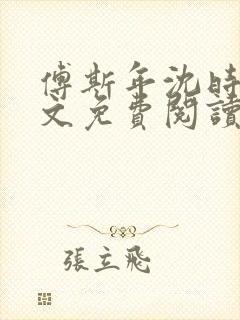 傅斯年沈時
文免費閱讀
張立飛